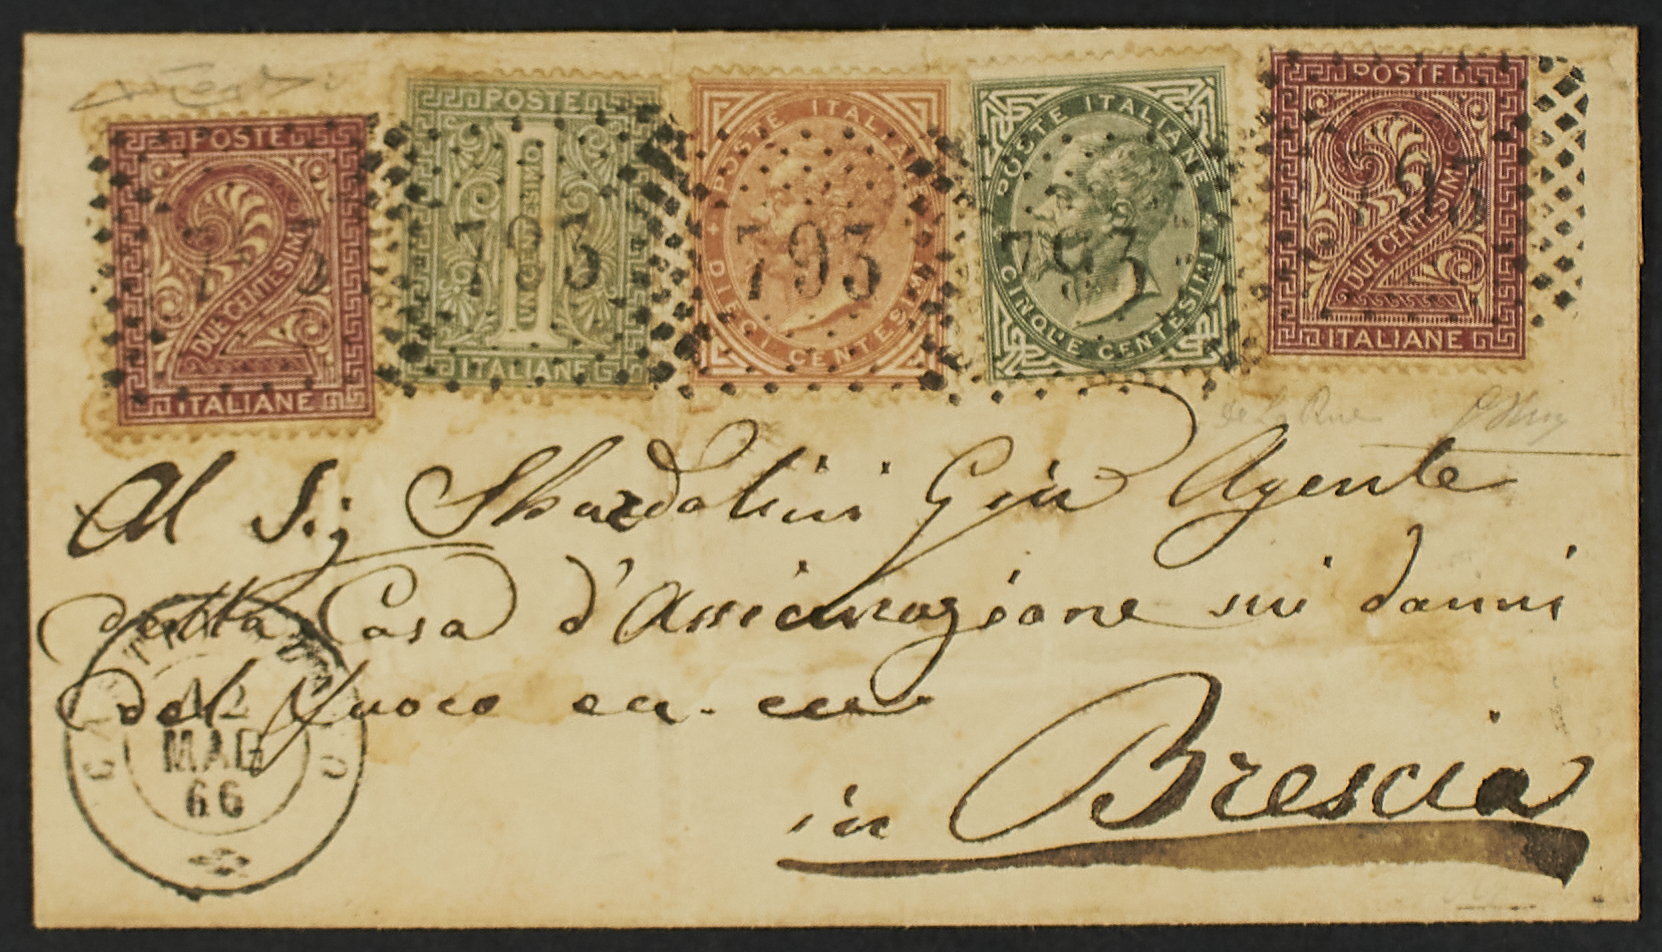 POSTE
DUE CENTESIMI
2
ITALIANE
POSTE
UN CENTESIMO
1
ITALIANE
793
POSTE ITALIANE
DIECI CENTESIMI
793
POSTE ITALIANE
CINQUE CENTESIMI
793
POSTE
DUE CENTESIMI
2
ITALIANE
793
de La Rue
Al Sig Sbardolini Giá Agente
della Casa d'Assicurazione sui danni
del Fuoco
in Brescia
12
MAG
66